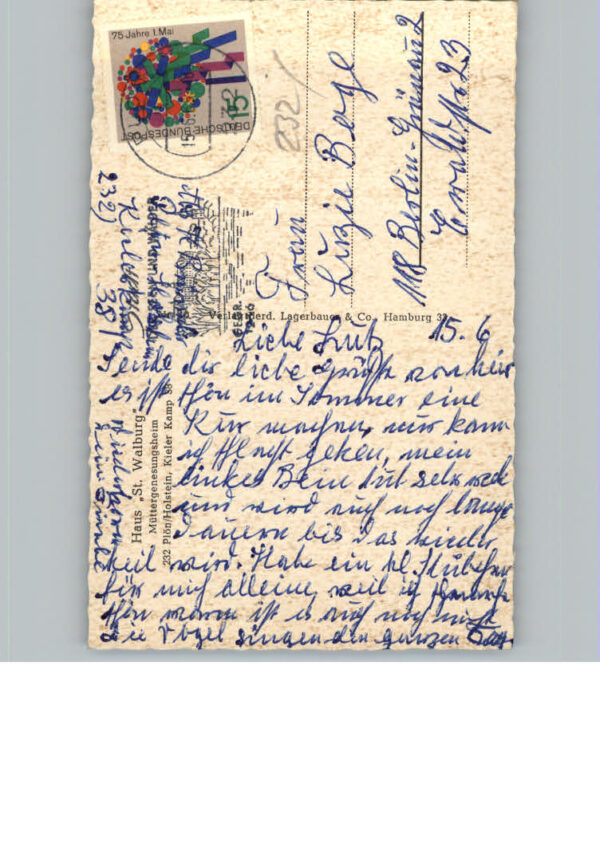 75 Jahre 1. Mai
15
DEUTSCHE BUNDESPOST
232
Frau
Luzie Berge
118 Berlin-Grünau 2
Ewaldstr 23
Verlag Ferd. Lagerbauer & Co., Hamburg
Haus „St. Walburg"
Müttergenesungsheim
232 Plön/Holstein, Kieler Kamp 38
232)
38
Liebe Lutz 15. 6
Sende dir liebe Grüße von hier
es ist schön im Sommer eine
Kur machen, nur kann
ich schlecht gehen, mein
linkes Bein tut sehr weh
und wird auch noch lange
dauern bis das wieder
heil wird. Habe ein kl. Stübchen
für mich alleine, weil ich schnarche
schön warm ist es auch noch nicht
die Vögel singen den ganzen Tag